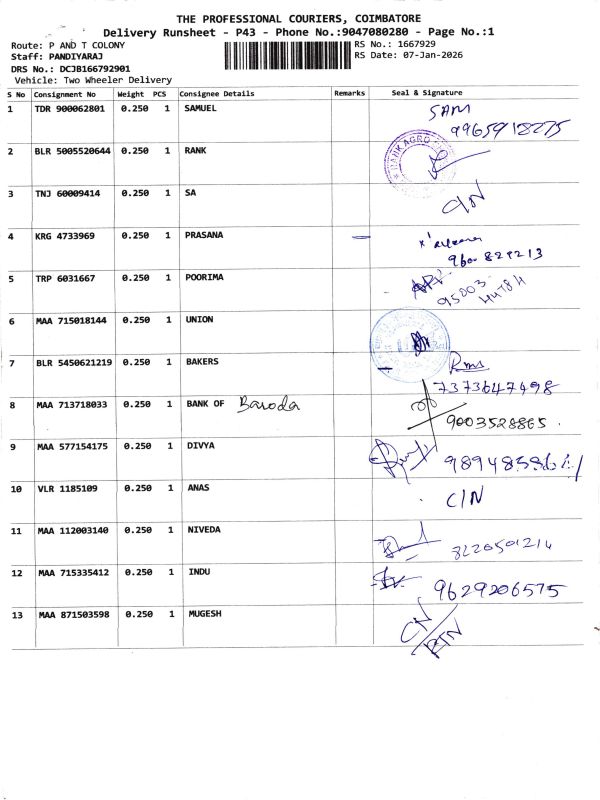 THE PROFESSIONAL COURIERS, COIMBATORE
Delivery Runsheet - P43 - Phone No.:9047080280 - Page No.:1
Route: P AND T COLONY
RS No.: 1667929
Staff: PANDIYARAJ
RS Date: 07-Jan-2026
DRS No.: DCJB166792901
Vehicle: Two Wheeler Delivery
S No Consignment No Weight PCS Consignee Details Remarks Seal & Signature
1 TDR 900062801 0.250 1 SAMUEL SAM
9965918275
2 BLR 5005520644 0.250 1 RANK
3 TNJ 60009414 0.250 1 SA C/N
4 KRG 4733969 0.250 1 PRASANA —
9600829213
5 TRP 6031667 0.250 1 POORIMA
95003
44784
6 MAA 715018144 0.250 1 UNION
7 BLR 5450621219 0.250 1 BAKERS
7373647498
8 MAA 713718033 0.250 1 BANK OF Baroda
9003528865.
9 MAA 577154175 0.250 1 DIVYA
10 VLR 1185109 0.250 1 ANAS C/N
11 MAA 112003140 0.250 1 NIVEDA 8220501214
12 MAA 715335412 0.250 1 INDU 9629206575
13 MAA 871503598 0.250 1 MUGESH CN/RTN